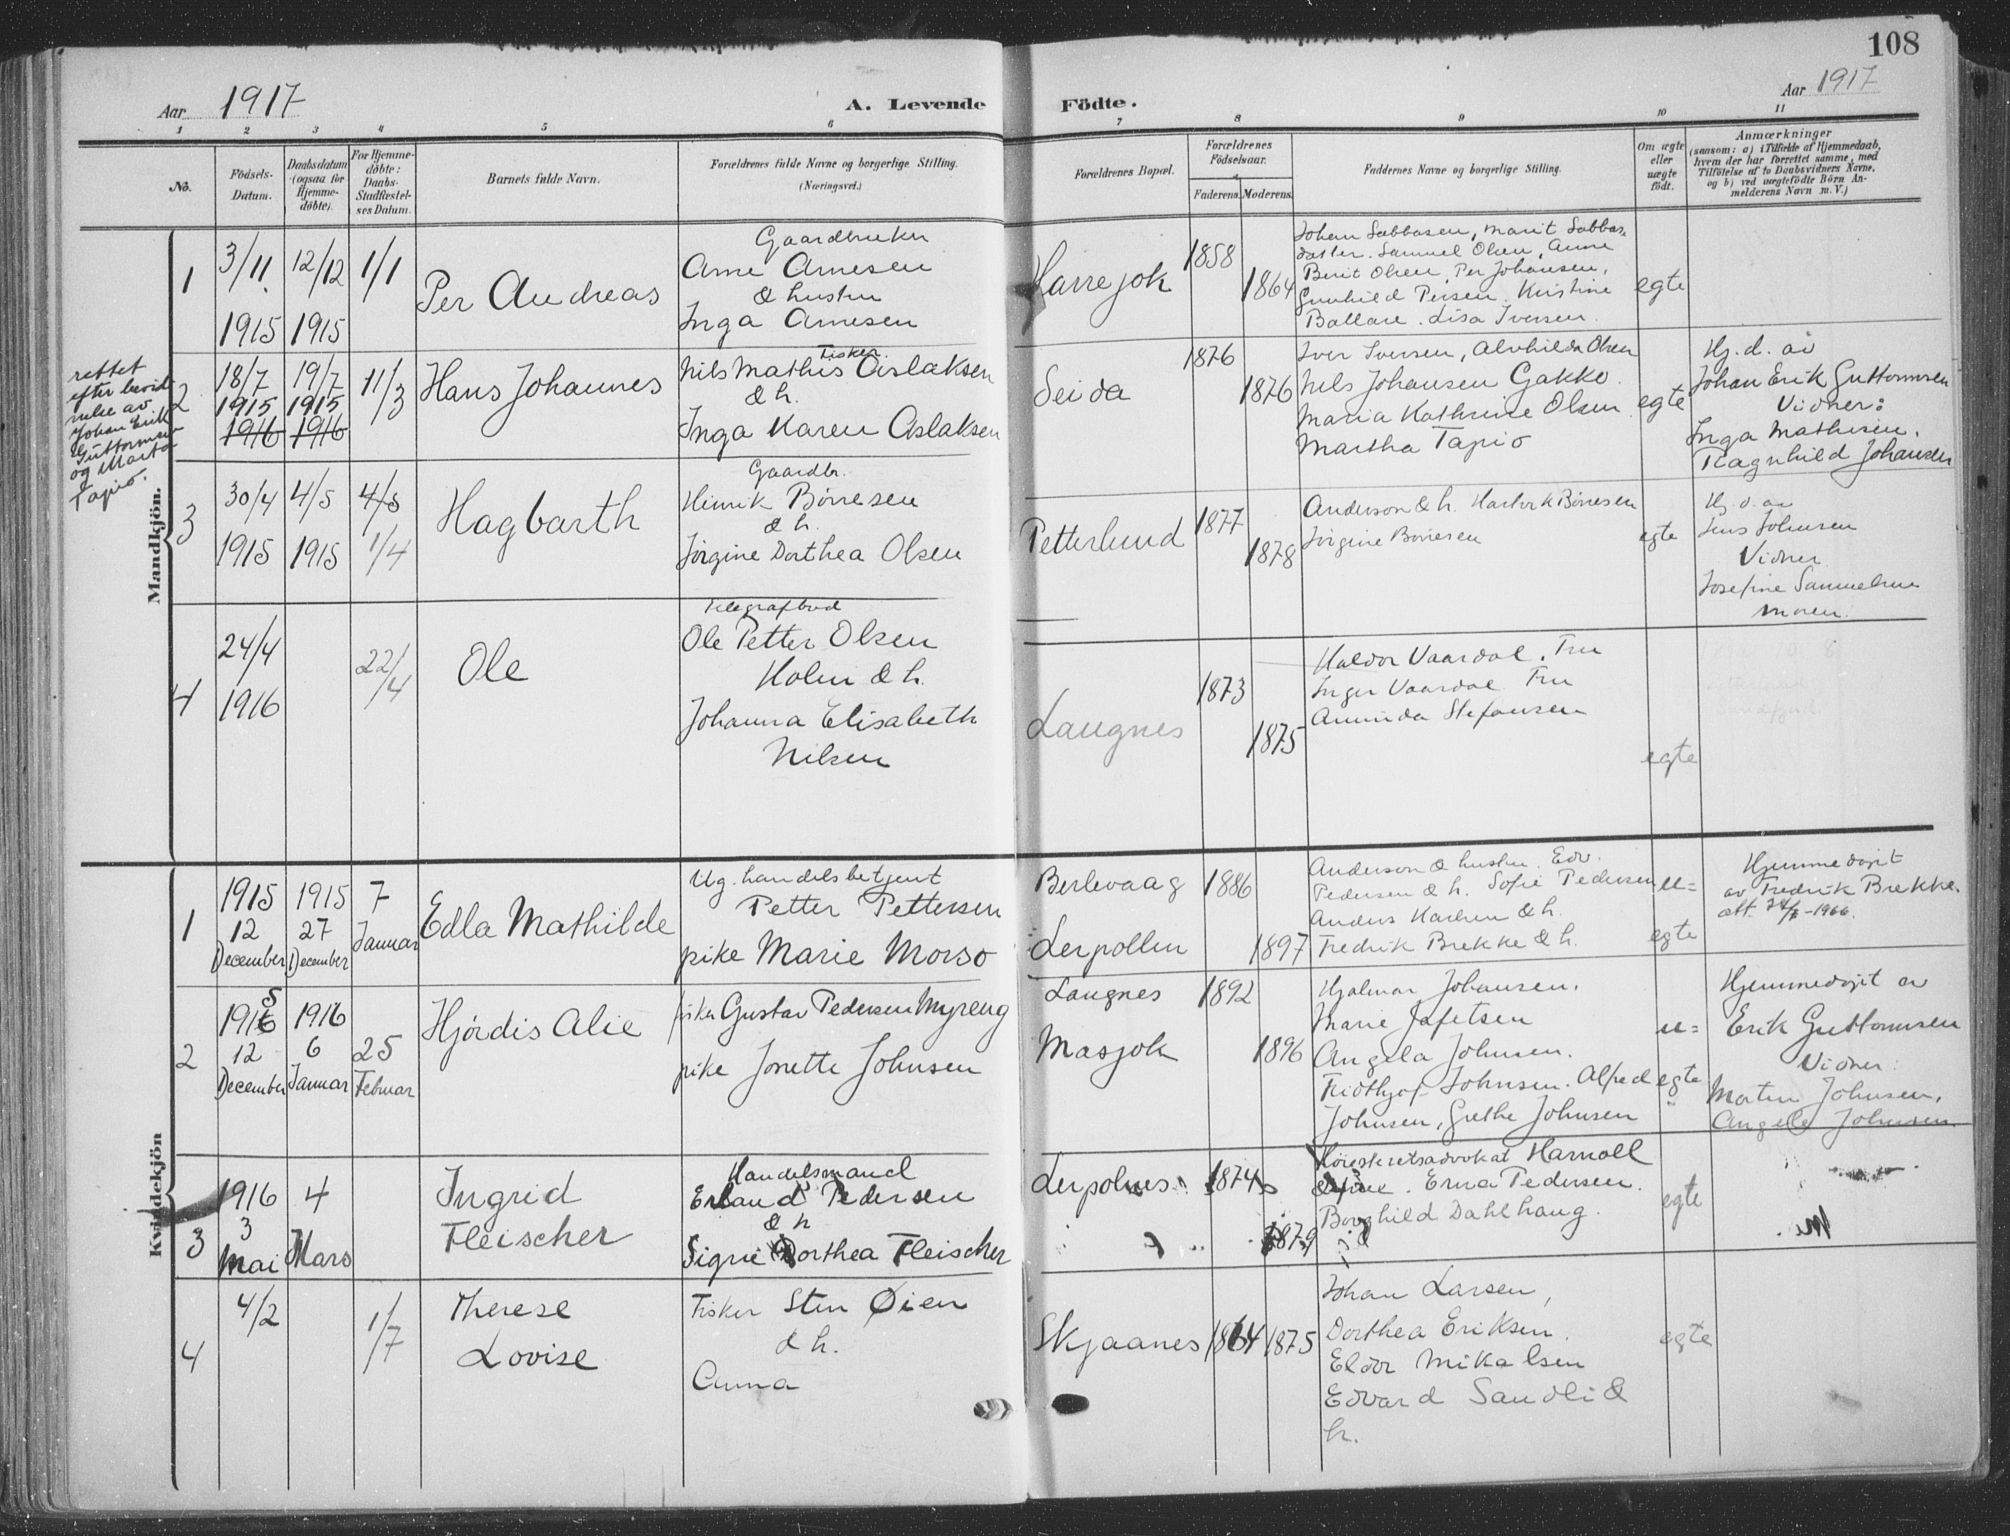 108
Aar 1917
A. Levende Födte.
Aar 1917
1 2 3 4 5 6 7 8 9 10 11
No.
Födsels-
Datum.
Daabsdatum
(ogsaa for
Hjemme-
döbte).
For Hjemme-
döbte:
Daabs-
Stadfæstel-
ses Datum.
Barnets fulde Navn.
Forældrenes fulde Navne og borgerlige Stilling.
(Næringsvei.)
Forældrenes Bopæl.
Forældrenes
Födselsaar.
Faderens. Moderens.
Faddernes Navne og borgerlige Stilling.
Om ægte
eller
uægte
födt.
Anmærkninger
(saasom: a) i Tilfælde af Hjemmedaab,
hvem der har forrettet samme, med
Tilföielse af to Daabsvidners Navne,
og b) ved uægtefödte Börn An-
melderens Navn m. V.)
Mandkjön.
1
3/11
1915
12/12
1915
1/1
Per Andreas
Gaardbruker
Arne Arnesen
& hustru
Inga Arnesen
Harrejok
1858
1864
Johan Sabbasen, Marit Sabbas
datter. Samuel Olsen, Anne
Berit Olsen, Per Johansen,
Gunhild Persen. Kristine
Ballare. Lisa Iversen.
egte
rettet
efter bevid
nelse av
Johan Erik
Guttormsen
og Marta
Tapio.
2
18/7
1915
1916
19/7
1915
1916
11/3
Hans Johannes
Fisker.
Nils Mathis Aslaksen
& h.
Inga Karen Aslaksen
Seida
1876
1876
Iver Iversen, Alvhilda Olsen
Nils Johansen Gakko.
Maria Kathrine Olsen
Martha Tapio
egte
Hj. d. av
Johan Erik Guttormsen
Vidner:
Inga Mathisen.
Ragnhild Johansen
3
30/4
1915
4/5
1915
4/8
1/4
Hagbarth
Gaardbr.
Henrik Børresen
& h.
Jørgine Dorthea Olsen
Petterlund
1877
1878
Anderson & h. Hartvik Børresen
Jørgine Børresen
egte
Hj. d. av
Jens Johnsen
Vidner
Josefine Samuelsen
moren.
4
24/4
1916
22/4
Ole
Telegrafbud
Ole Petter Olsen
Holm & h.
Johanna Elisabeth
Nilsen
Langnes
1873
1875
Haldor Vaardal. Fru
Inger Vaardal. Fru
Aminda Stefansen
egte
Kvindekjön
1
1915
12
December
1915
27
December
7
Januar
Edla Mathilde
Ug. handelsbetjent
Petter Pettersen
pike Marie Morso
Berlevaag
Lerpollen
1886
1897
Anderson & hustru. Edv.
Pedersen & h. Sofie Pedersen
Anders Karlsen & h.
Fredrik Brekke & h.
u=
egte
Hjemmedøpt
av Fredrik Brekke.
att. 24/8-1966.
2
1915
12
December
1916
6
Januar
25
Februar
Hjørdis Alie
fisker Gustav Pedersen Myreng
pike Jonette Johnsen
Langnes
Masjok
1892
1896
Hjalmar Johansen.
Marie Jafetsen
Angela Johnsen.
Fridthjof Johnsen. Alfred
Johnsen, Grethe Johnsen
u=
egte
Hjemmedøpt av
Erik Guttormsen
Vidner:
Morten Johnsen,
Angela Johnsen
3
1916
3
Mai
4
Mars
Ingrid
Fleischer
Handelsmand
Erland Pedersen
& h
Signe Dorthea Fleischer
Lerpolnes
1874
1879
Høiesteretsadvokat Harnoll
Erna Pedersen.
Borghild Dahlhaug.
egte
4
4/2
1/7
Therese
Lovise
Fisker Sten Øien
& h.
Anna
Skjaanes
1864
1875
Johan Larsen,
Dorthea Eriksen.
Eldor Mikalsen
Edvard Sandli &
h.
egte